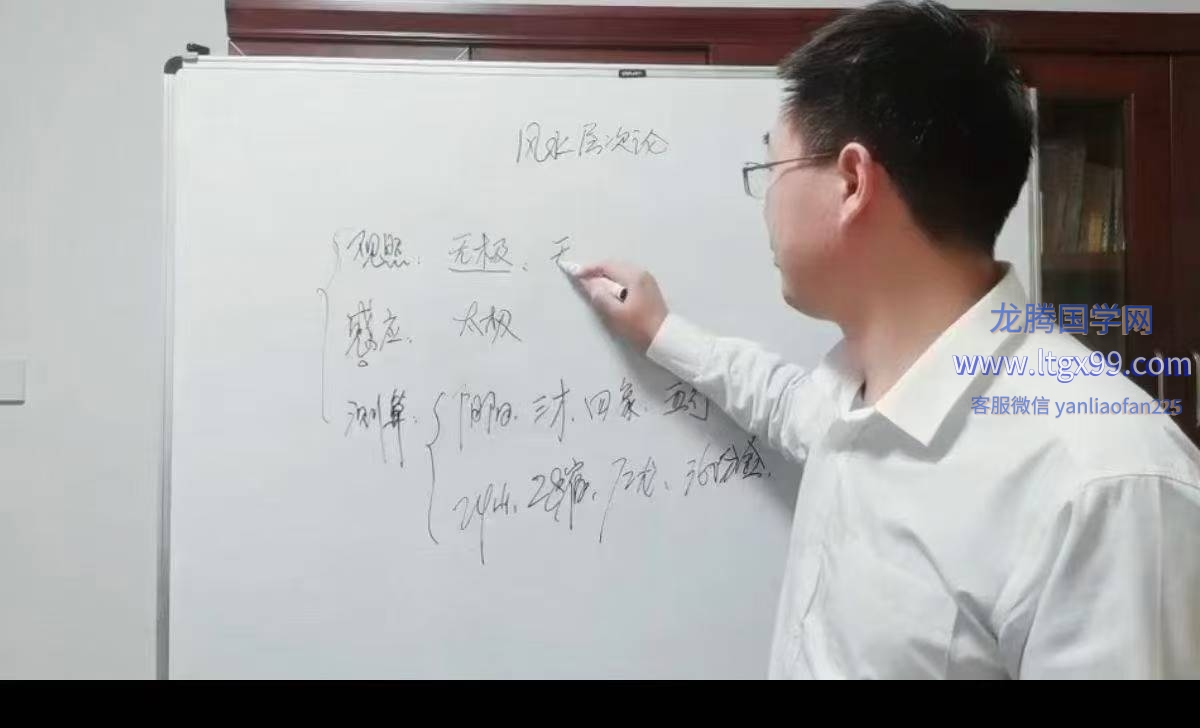 风水层次论
观照、无极、无
感应、太极
测算、阴阳、三才、四象、五行
24山、28宿、72龙、120分金、
龙腾国学网
www.ltgx99.com
客服微信 yanliaofan225